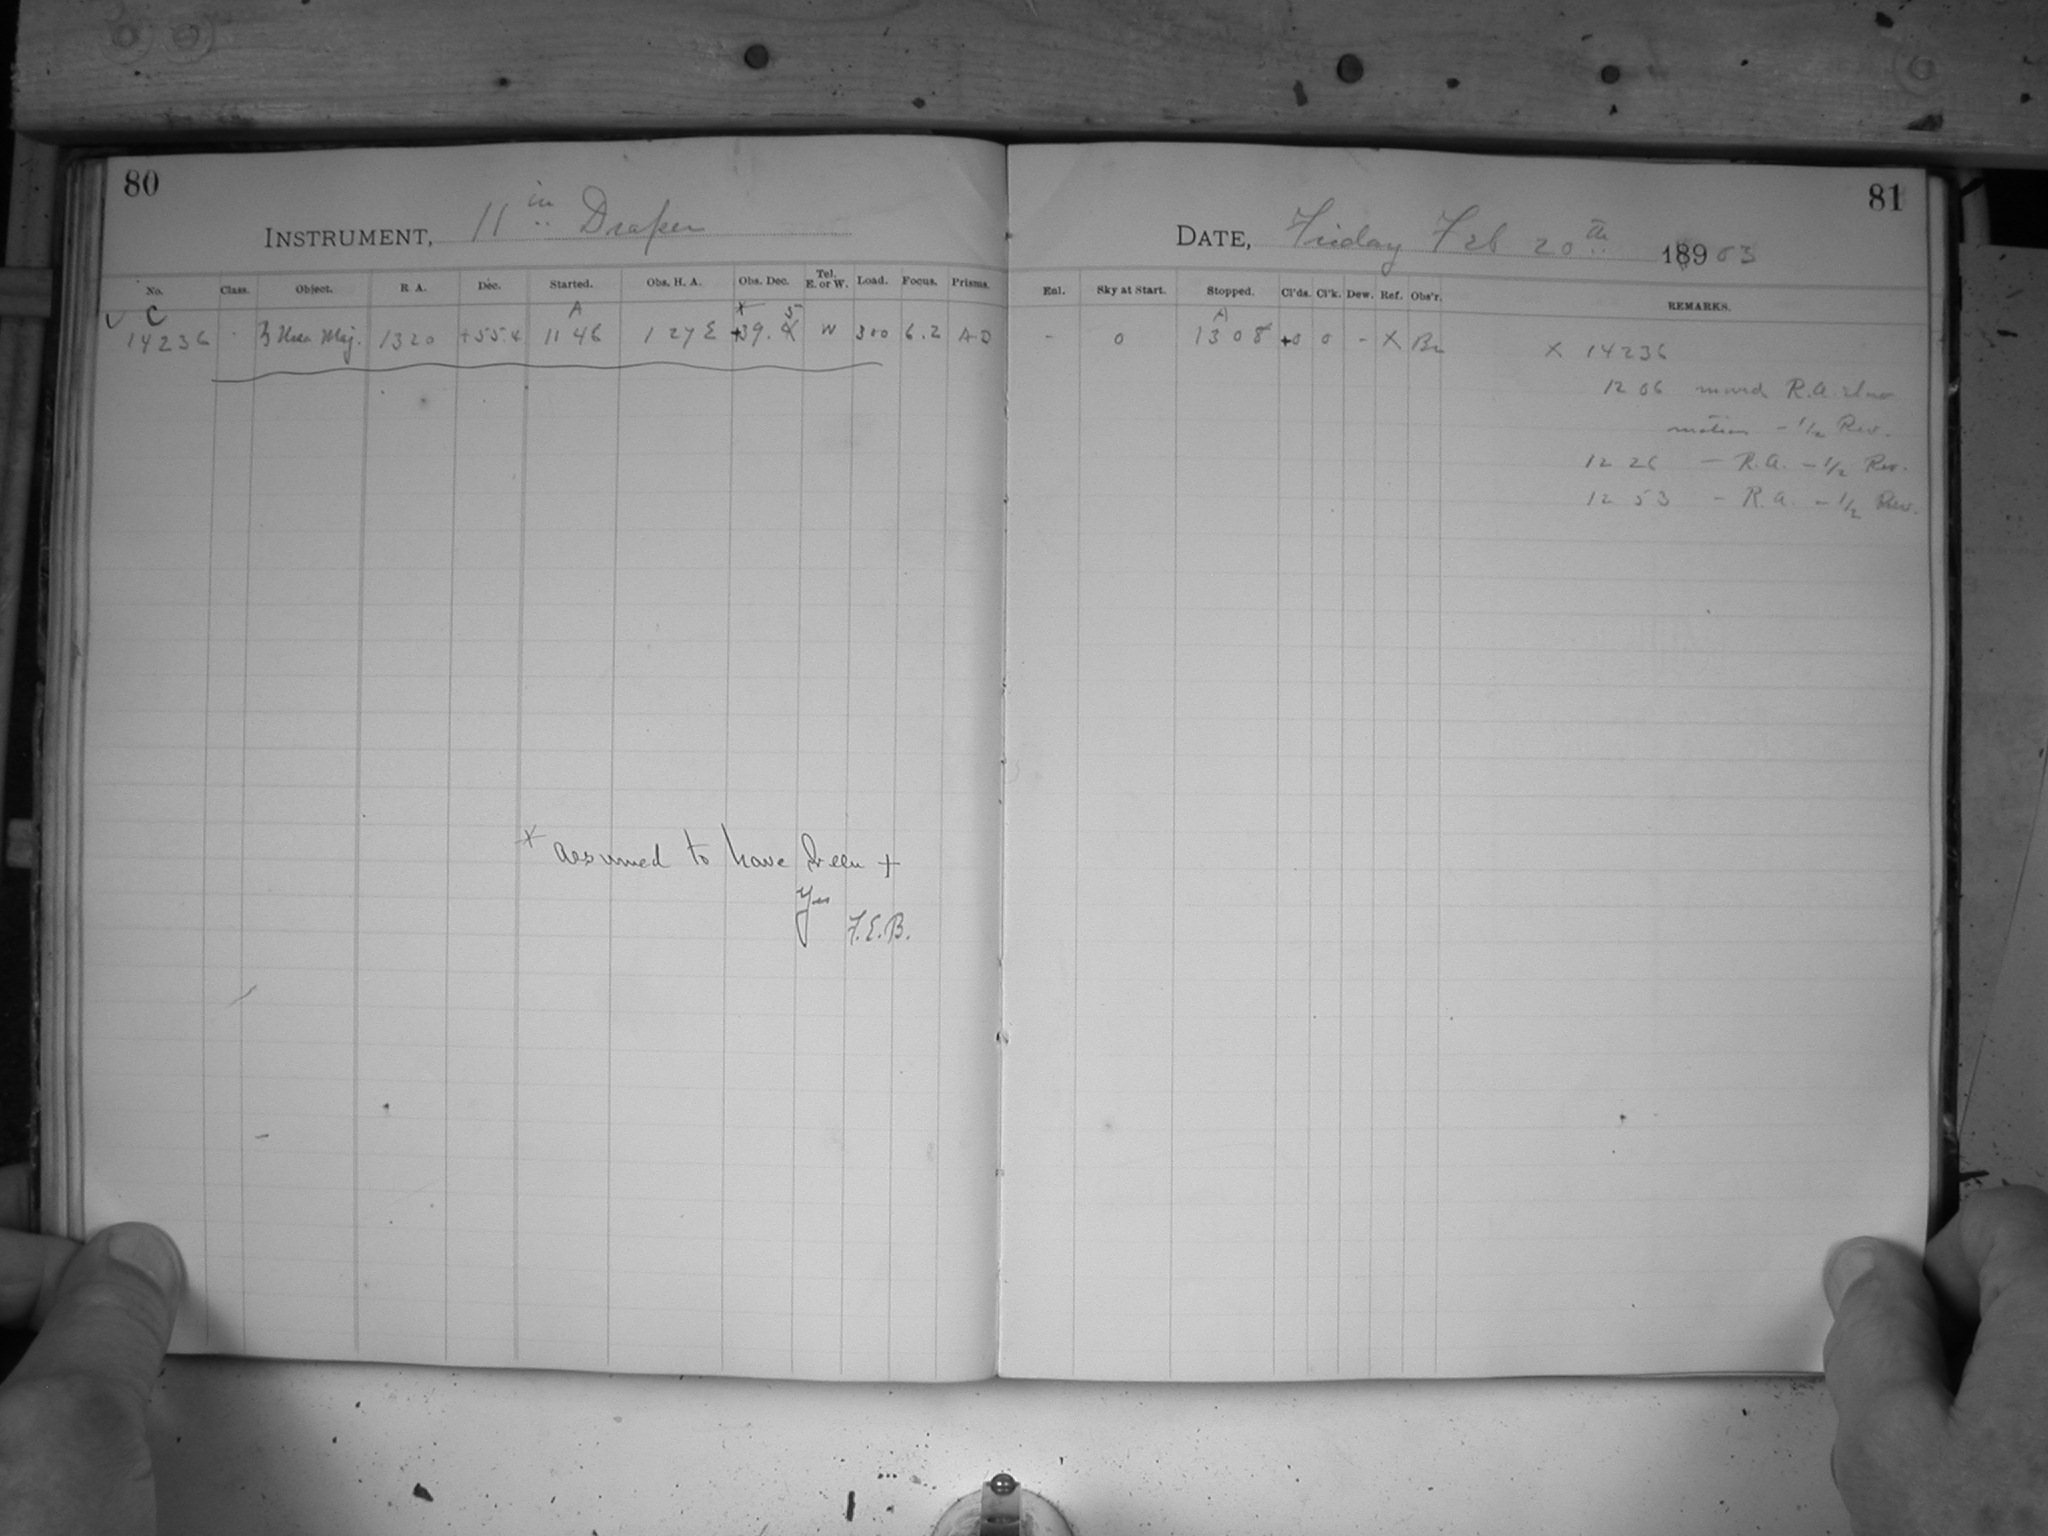 80
INSTRUMENT, 11 in Draper
No. Class. Object. R A. Dec. Started. Obs. H. A. Obs. Dec. Tel. E. or W. Load. Focus. Prisms.
C A * 5
14236 ζ Ursa Maj. 1320 +55.4 11 46 1 27 E +39. W 300 6.2 A-D
* assumed to have been +
Yes
F.E.B.
81
DATE, Friday Feb 20th 189 03
Enl. Sky at Start. Stopped. Cl'ds. Cl'k. Dew. Ref. Obs'r. REMARKS.
A
- 0 13 08 +0 0 - X Br X 14236
12 06 moved R.A. slow
motion - 1/2 Rev.
12 26 - R.A. - 1/2 Rev.
12 53 - R.A. - 1/2 Rev.